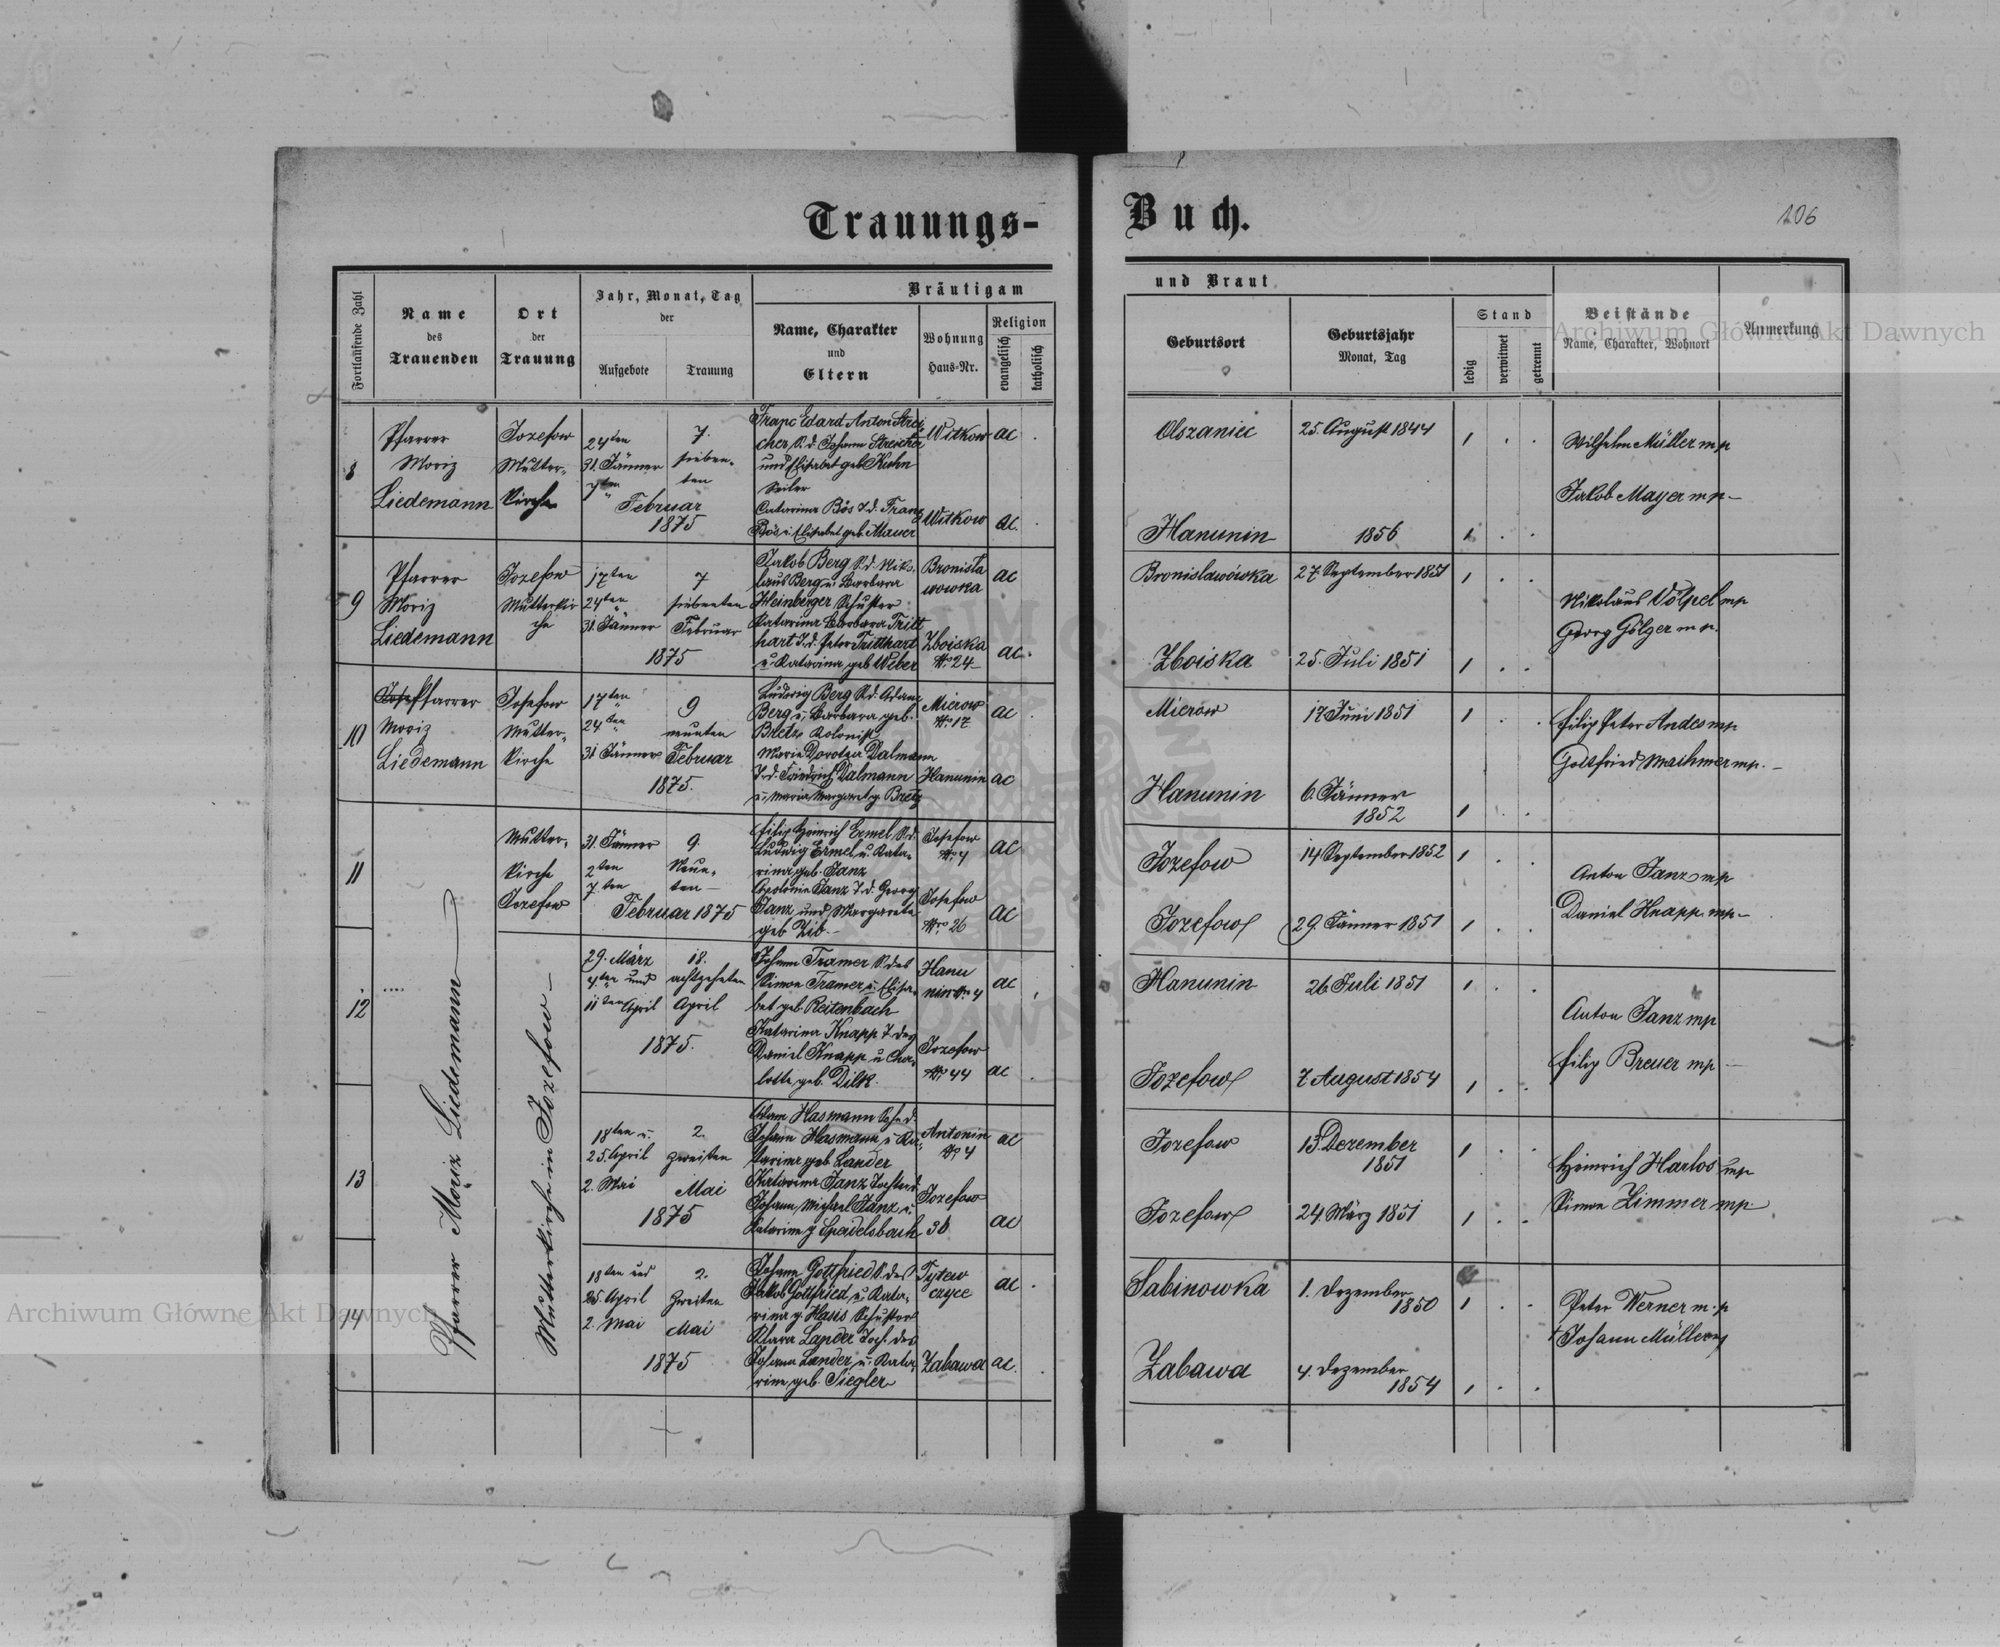 Trauungs-
Buch.
106
Fortlaufende Zahl
Name
des
Trauenden
Ort
der
Trauung
Jahr, Monat, Tag
der
Aufgebote
Trauung
Bräutigam
Name, Charakter
und
Eltern
Wohnung
Haus-Nr.
Religion
evangelisch
katholisch
und Braut
Geburtsort
Geburtsjahr
Monat, Tag
Stand
ledig
verwitwet
getrennt
Beistände
Name, Charakter, Wohnort
Anmerkung
Archiwum Główne Akt Dawnych
8
Pfarrer
Moriz
Liedemann
Jozefow
Mutter-
kirche
24ten
31. Jänner
7ten
Februar
1875
7.
sieben-
ten
Franz Edard Anton Strei
cher S.d. Johann Streicher
und Elisabet geb Kuhn
Seiler
Catarina Bös T.d. Franz
Bös u. Elisabet geb. Mauer
Witkow
ac
Witkow
ac.
Olszaniec
25. August 1844
Hanunin
1856
Wilhelm Müller mp
Jakob Mayer mp
9
Pfarrer
Moriz
Liedemann
Jozefow
Mutterkir
che
17ten
24ten
31. Jänner
7
siebenten
Februar
1875
Jakob Berg S.d. Niko-
laus Berg u. Barbara
Heinberger Schuster
Katarina Barbara Tritt
hart T.d. Peter Tritthart
u. Katarina geb Weber
Bronisła
wowka
ac
Zboiska
No 24
ac.
Bronislawówka
27. September 1851
Zboiska
25. Juli 1851
Nikolaus Völpel mp
Georg Gölger mp.
10
Pfarrer
Moriz
Liedemann
Josefow
Mutter-
kirche
17ten
24ten
31 Jänner
9
neunten
Februar
1875.
Ludwig Berg S.d. Adam
Berg u. Barbara geb.
Bretz Kolonist
Maria Dorotea Dalmann
T.d. Friedrich Dalmann
u. Maria Margaret g. Bretz
Mierow
No 17
ac
Hanunin
ac
Mierów
17 Juni 1851
Hanunin
6. Jänner
1852
Filip Peter Andes mp
Gottfried Maschmer mp.
11
Mutter-
kirche
Jozefow
31. Jänner
2ten
7.ten
9.
Neun-
ten
Februar 1875
Filip Heinrich Ermel S.d.
Ludwig Ermel u. Kata-
rina geb. Janz
Apolonia Janz T.d. Georg
Janz und Margarete
geb Zib.
Josefow
No 4
ac
Josefow
No 26
ac
Jozefow
14 September 1852
Jozefow
29. Jänner 1851
Anton Janz mp
Daniel Knapp mp
12
29. März
4ten und
11ten April
18.
achtzehnten
April
1875.
Johann Tramer S. des
Simon Tramer u. Elisa-
bet geb. Reitenbach
Katarina Knapp T. des
Daniel Knapp u Char-
lotte geb. Dilk.
Hanu
nin No 4
ac
Jozefow
No 44
ac
Hanunin
26 Juli 1851
Jozefow
7 August 1854
Anton Janz mp
Filip Breuer mp
Pfarrer Moriz Liedemann
Mutterkirche in Jozefow
13
18ten u.
25. April
2. Mai
2.
zweiten
Mai
1875
Adam Hasmann Sohn d.
Johann Hasmann u. Ka-
tarina geb Lander
Katarina Janz Tochter d.
Johann Michael Janz u
Katarina g Speidelsbach
Antonin
No 4
ac
Jozefow
38
ac
Jozefow
13. Dezember
1851
Jozefow
24. März 1851
Heinrich Harlos mp
Simon Zimmer mp
14
18ten und
25. April
2. Mai
2.
Zweiten
Mai
1875
Johann Gottfried S. des
Jakob Gottfried u. Kata-
rina g. Hasis Schuster
Klara Lander Toch. des
Johann Lander u. Kata-
rina geb. Siegler
Tytew
czyce
ac
Zabawa
ac.
Sabinowka
1. Dezember
1850
Zabawa
4. Dezember
1854
Peter Werner m.p
Johann Müller mp
Archiwum Główne Akt Dawnych